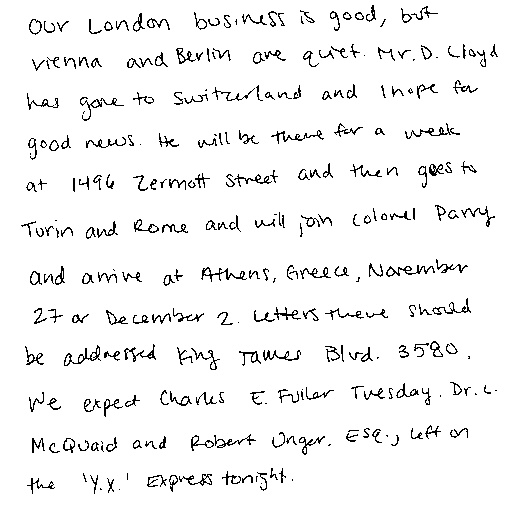 Our London business is good, but
Vienna and Berlin are quiet. Mr. D. Lloyd
has gone to Switzerland and I hope for
good news. He will be there for a week
at 1496 Zermott Street and then goes to
Turin and Rome and will join Colonel Parry
and arrive at Athens, Greece, November
27 or December 2. Letters there should
be addressed King James Blvd. 3580.
We expect Charles E. Fuller Tuesday. Dr. L.
McQuaid and Robert Unger, Esq., left on
the 'Y.X.' Express tonight.